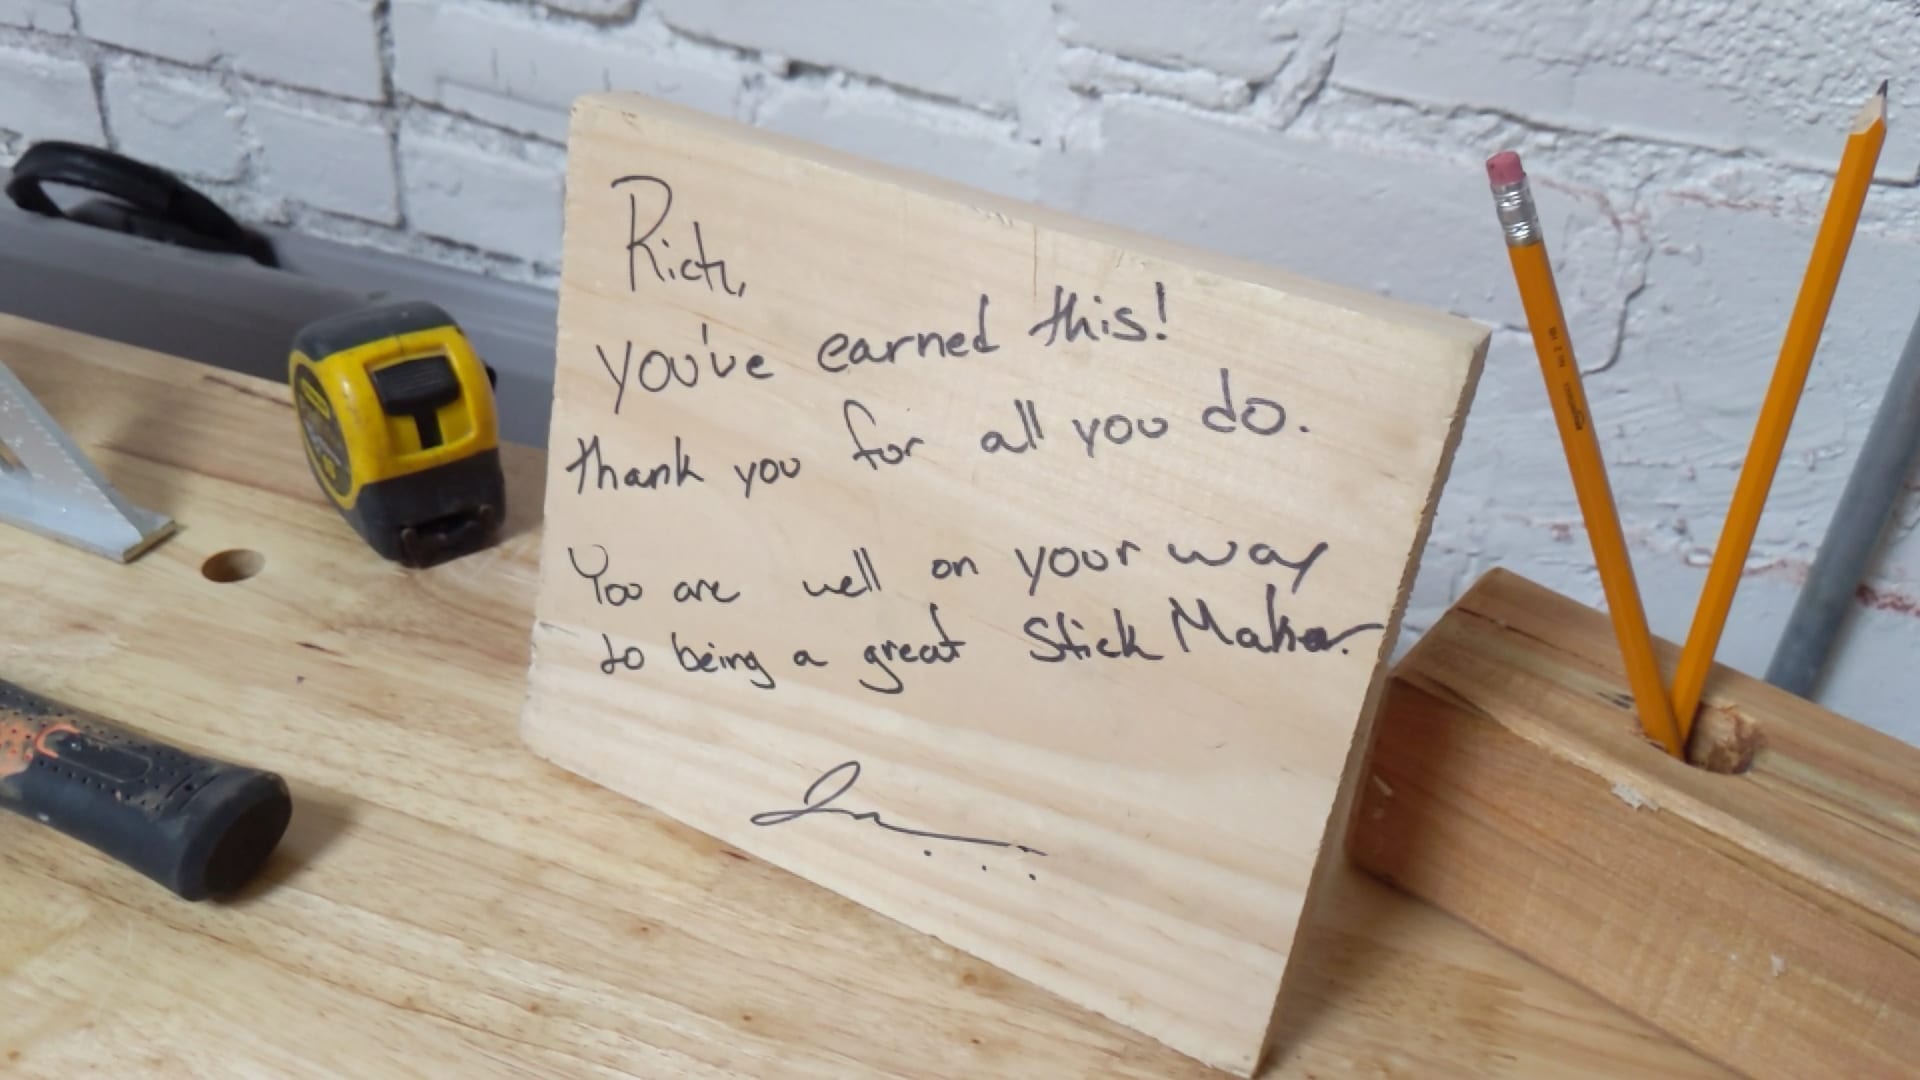 Rich,
you've earned this!
thank you for all you do.
You are well on your way
to being a great Stick Maker.